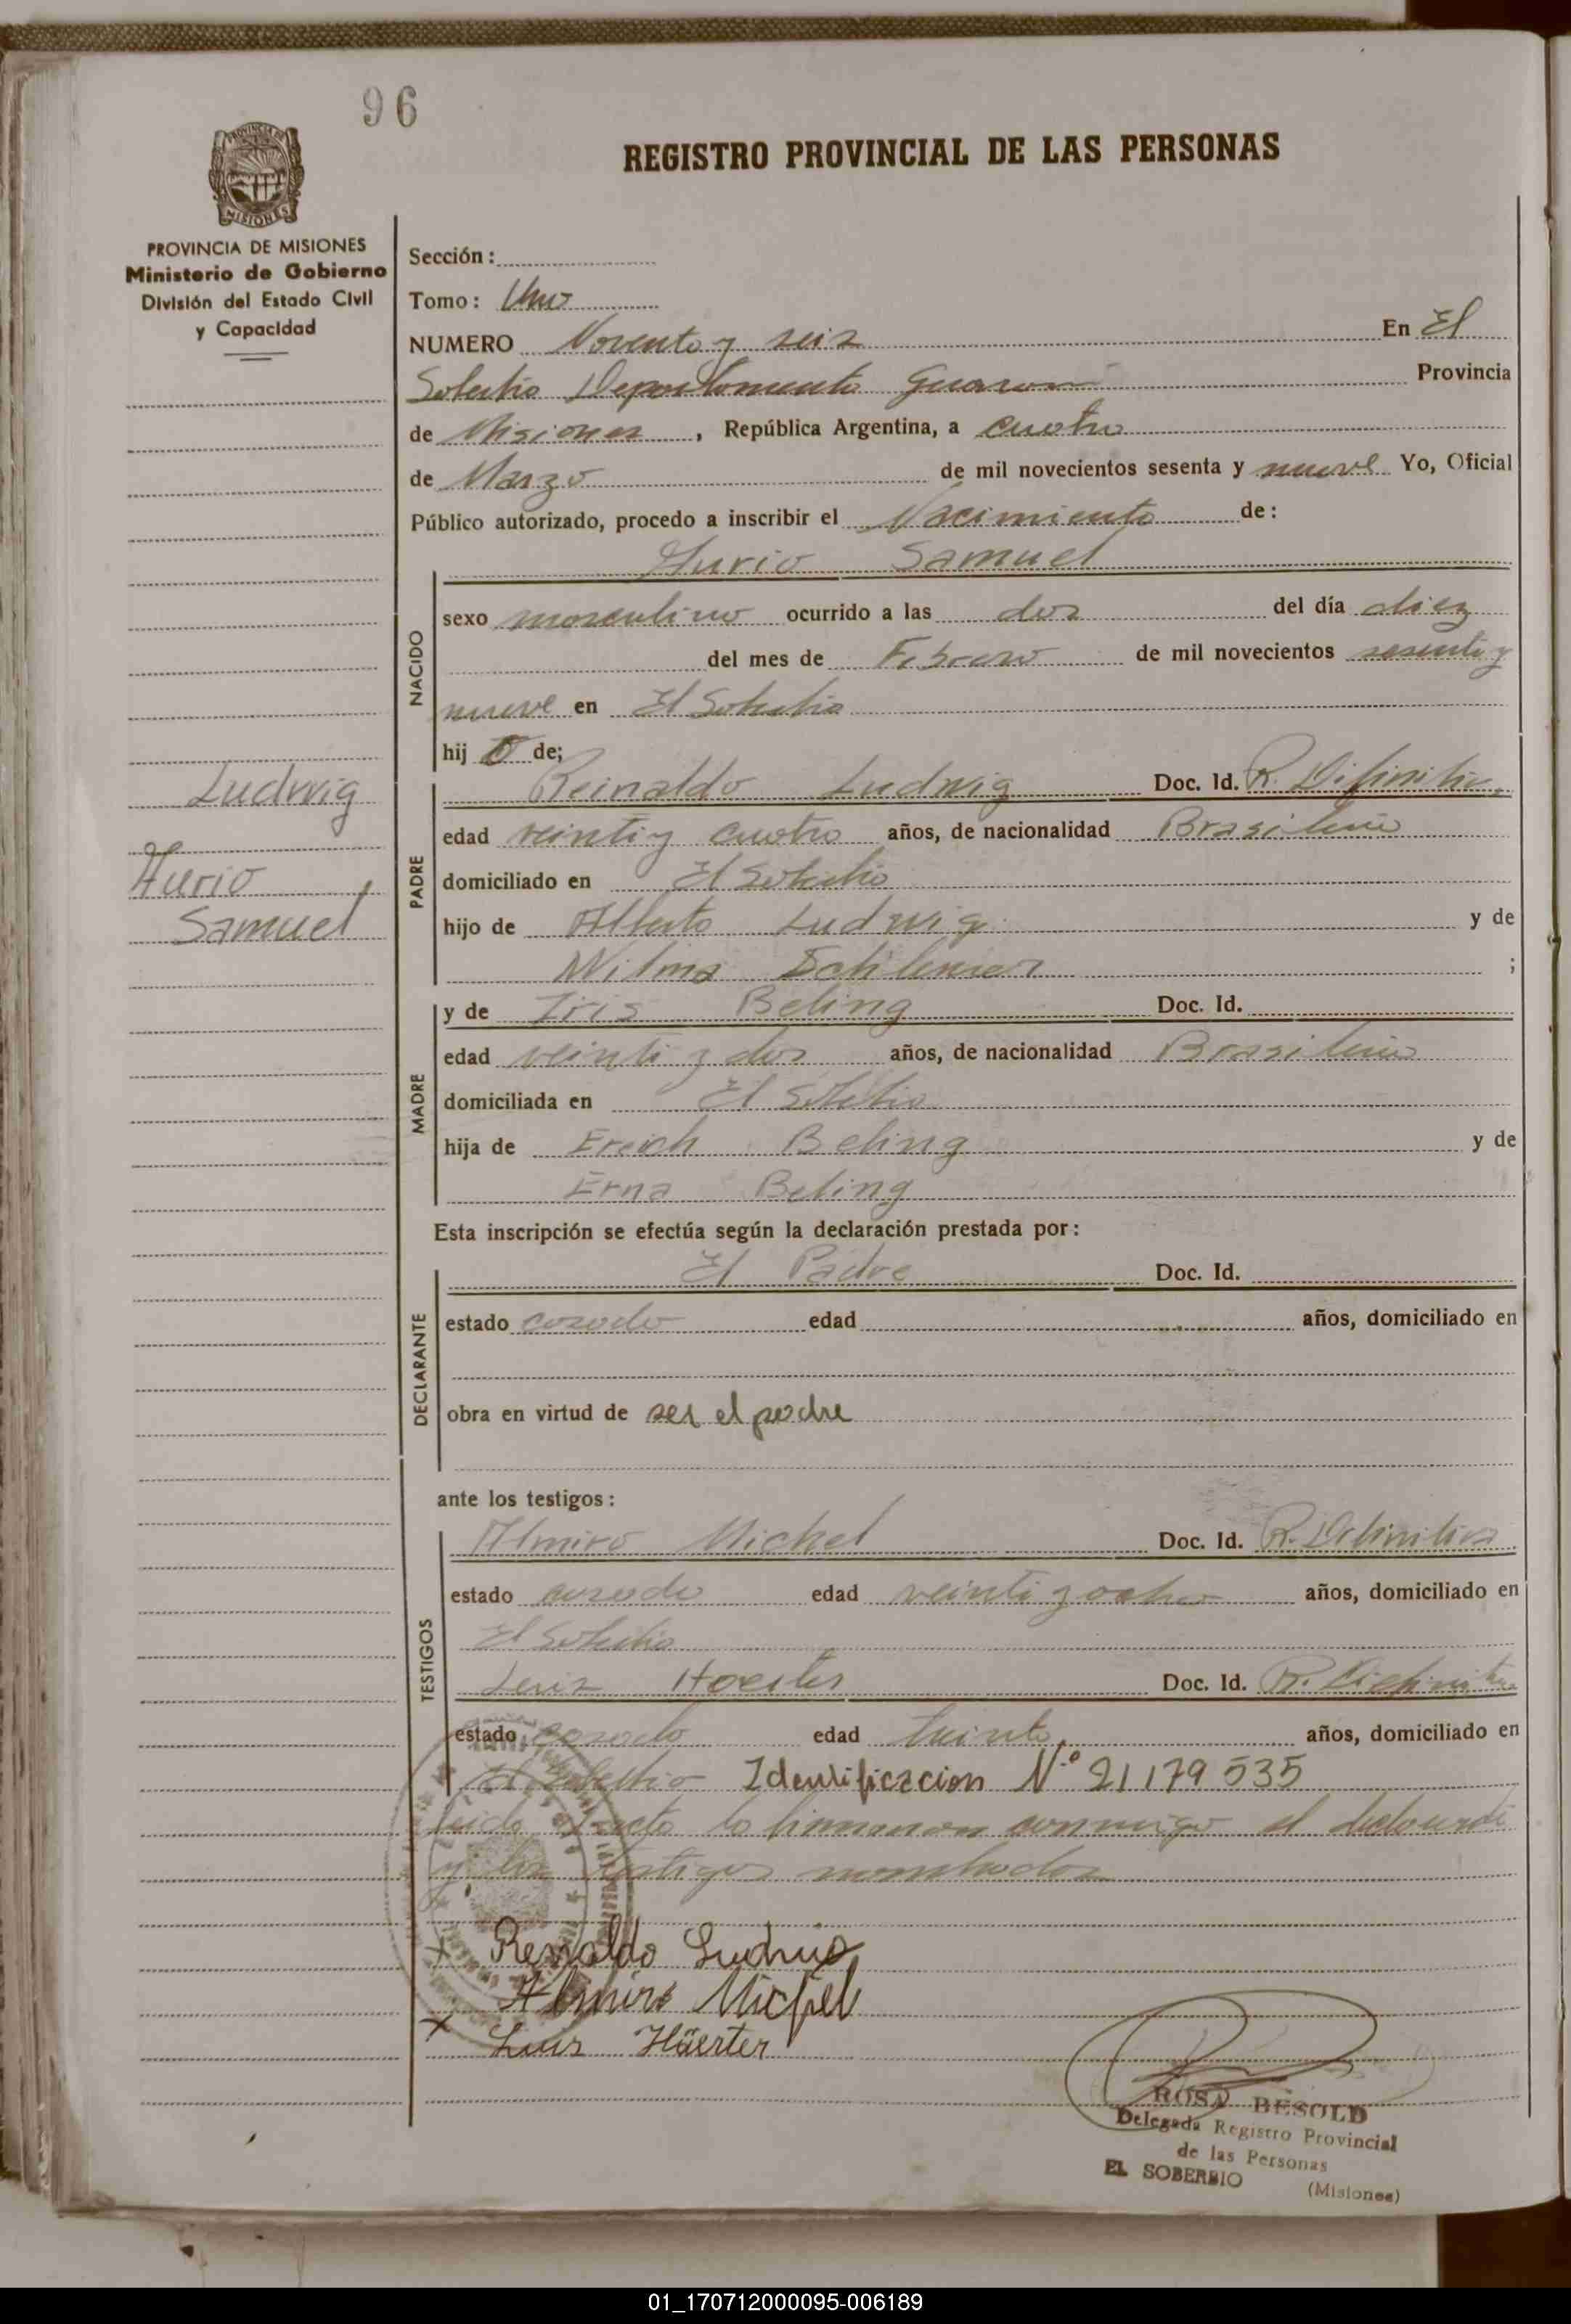 96
REGISTRO PROVINCIAL DE LAS PERSONAS
PROVINCIA DE MISIONES
Ministerio de Gobierno
División del Estado Civil
y Capacidad
Sección:
Tomo: Uno
NUMERO Noventa y seis En El
Soberbio Departamento Guarani Provincia
de Misiones, República Argentina, a cuatro
de Marzo de mil novecientos sesenta y nueve Yo, Oficial
Público autorizado, procedo a inscribir el Nacimiento de:
Aurio Samuel
NACIDO
sexo masculino ocurrido a las dos del día diez
del mes de Febrero de mil novecientos sesenta y
nueve en El Soberbio
hij o de;
Ludwig
Aurio
Samuel
PADRE
Reinaldo Ludwig Doc. Id. R. Difinitiva
edad veinti y cuatro años, de nacionalidad Brasilera
domiciliado en El Soberbio
hijo de Alberto Ludwig y de
Wilma ;
MADRE
y de Iris Beling Doc. Id.
edad veinti y dos años, de nacionalidad Brasilera
domiciliada en El Soberbio
hija de Ereich Beling y de
Erna Beling
Esta inscripción se efectúa según la declaración prestada por:
DECLARANTE
El Padre Doc. Id.
estado casado edad años, domiciliado en
obra en virtud de ser el padre
ante los testigos:
TESTIGOS
Almiro Michel Doc. Id. R. Difinitiva
estado casado edad veinti y ocho años, domiciliado en
El Soberbio
Luis Doc. Id. R. Difinitiva
estado casado edad treinta años, domiciliado en
El Soberbio Identificacion N.º 21179535
leida el acta la firmaron conmigo el
y los testigos nombrados
x Reinaldo Ludwig
Almiro Michel
x Luis Hüerter
ROSA BESOLD
Delegada Registro Provincial
de las Personas
EL SOBERBIO (Misiones)
01_170712000095-006189